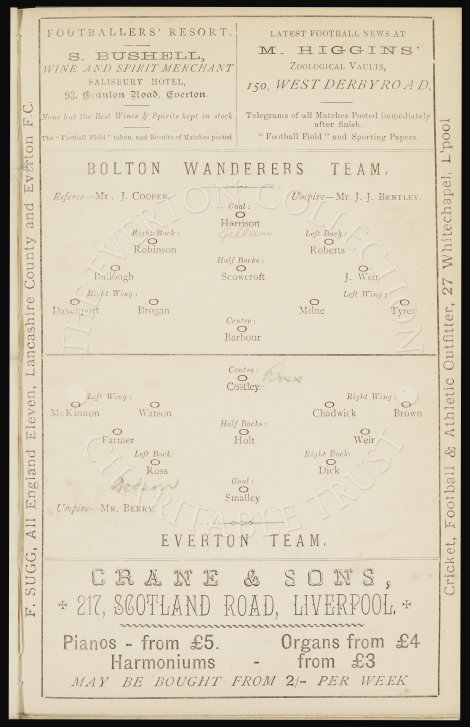 FOOTBALLERS' RESORT.
S. BUSHELL,
WINE AND SPIRIT MERCHANT
SALISBURY HOTEL,
93, Granton Road, Everton.
None but the Best Wines & Spirits kept in stock
The "Football Field" taken, and Results of Matches posted
LATEST FOOTBALL NEWS AT
M. HIGGINS'
ZOOLOGICAL VAULTS,
150, WEST DERBY ROAD.
Telegrams of all Matches Posted immediately
after finish.
"Football Field" and Sporting Papers.
BOLTON WANDERERS TEAM.
Referee—Mr. J. COOPER.
Umpire—Mr. J. J. BENTLEY.
Goal:
Harrison
Gillam
Right Back:
Robinson
Left Back:
Roberts
Half Backs:
Bullough
Scowcroft
J. Weir
Right Wing:
Left Wing:
Davenport
Brogan
Milne
Tyrer
Centre:
Barbour
Centre:
Costley
Ross
Left Wing:
Right Wing:
McKinnon
Watson
Chadwick
Brown
Half Backs:
Farmer
Holt
Weir
Left Back:
Ross
Dobson
Right Back:
Dick
Goal:
Smalley
Umpire—MR. BERRY.
EVERTON TEAM.
CRANE & SONS,
217, SCOTLAND ROAD, LIVERPOOL.
Pianos - from £5. Organs from £4
Harmoniums - from £3
MAY BE BOUGHT FROM 2/- PER WEEK
F. SUGG, All England Eleven, Lancashire County and Everton F.C.
Cricket, Football & Athletic Outfitter, 27 Whitechapel, L'pool
THE EVERTON COLLECTION
CHARITABLE TRUST